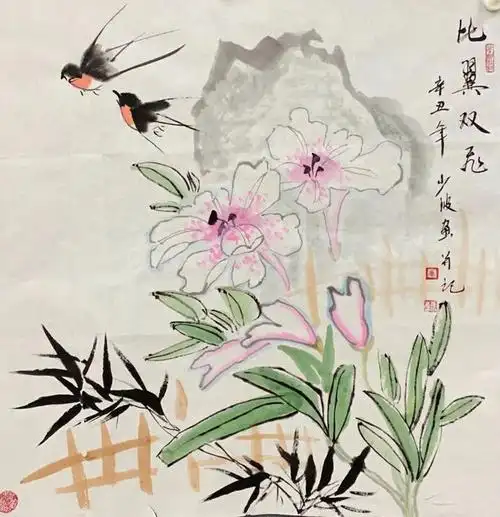 比翼双飞
辛丑年 少波画并记